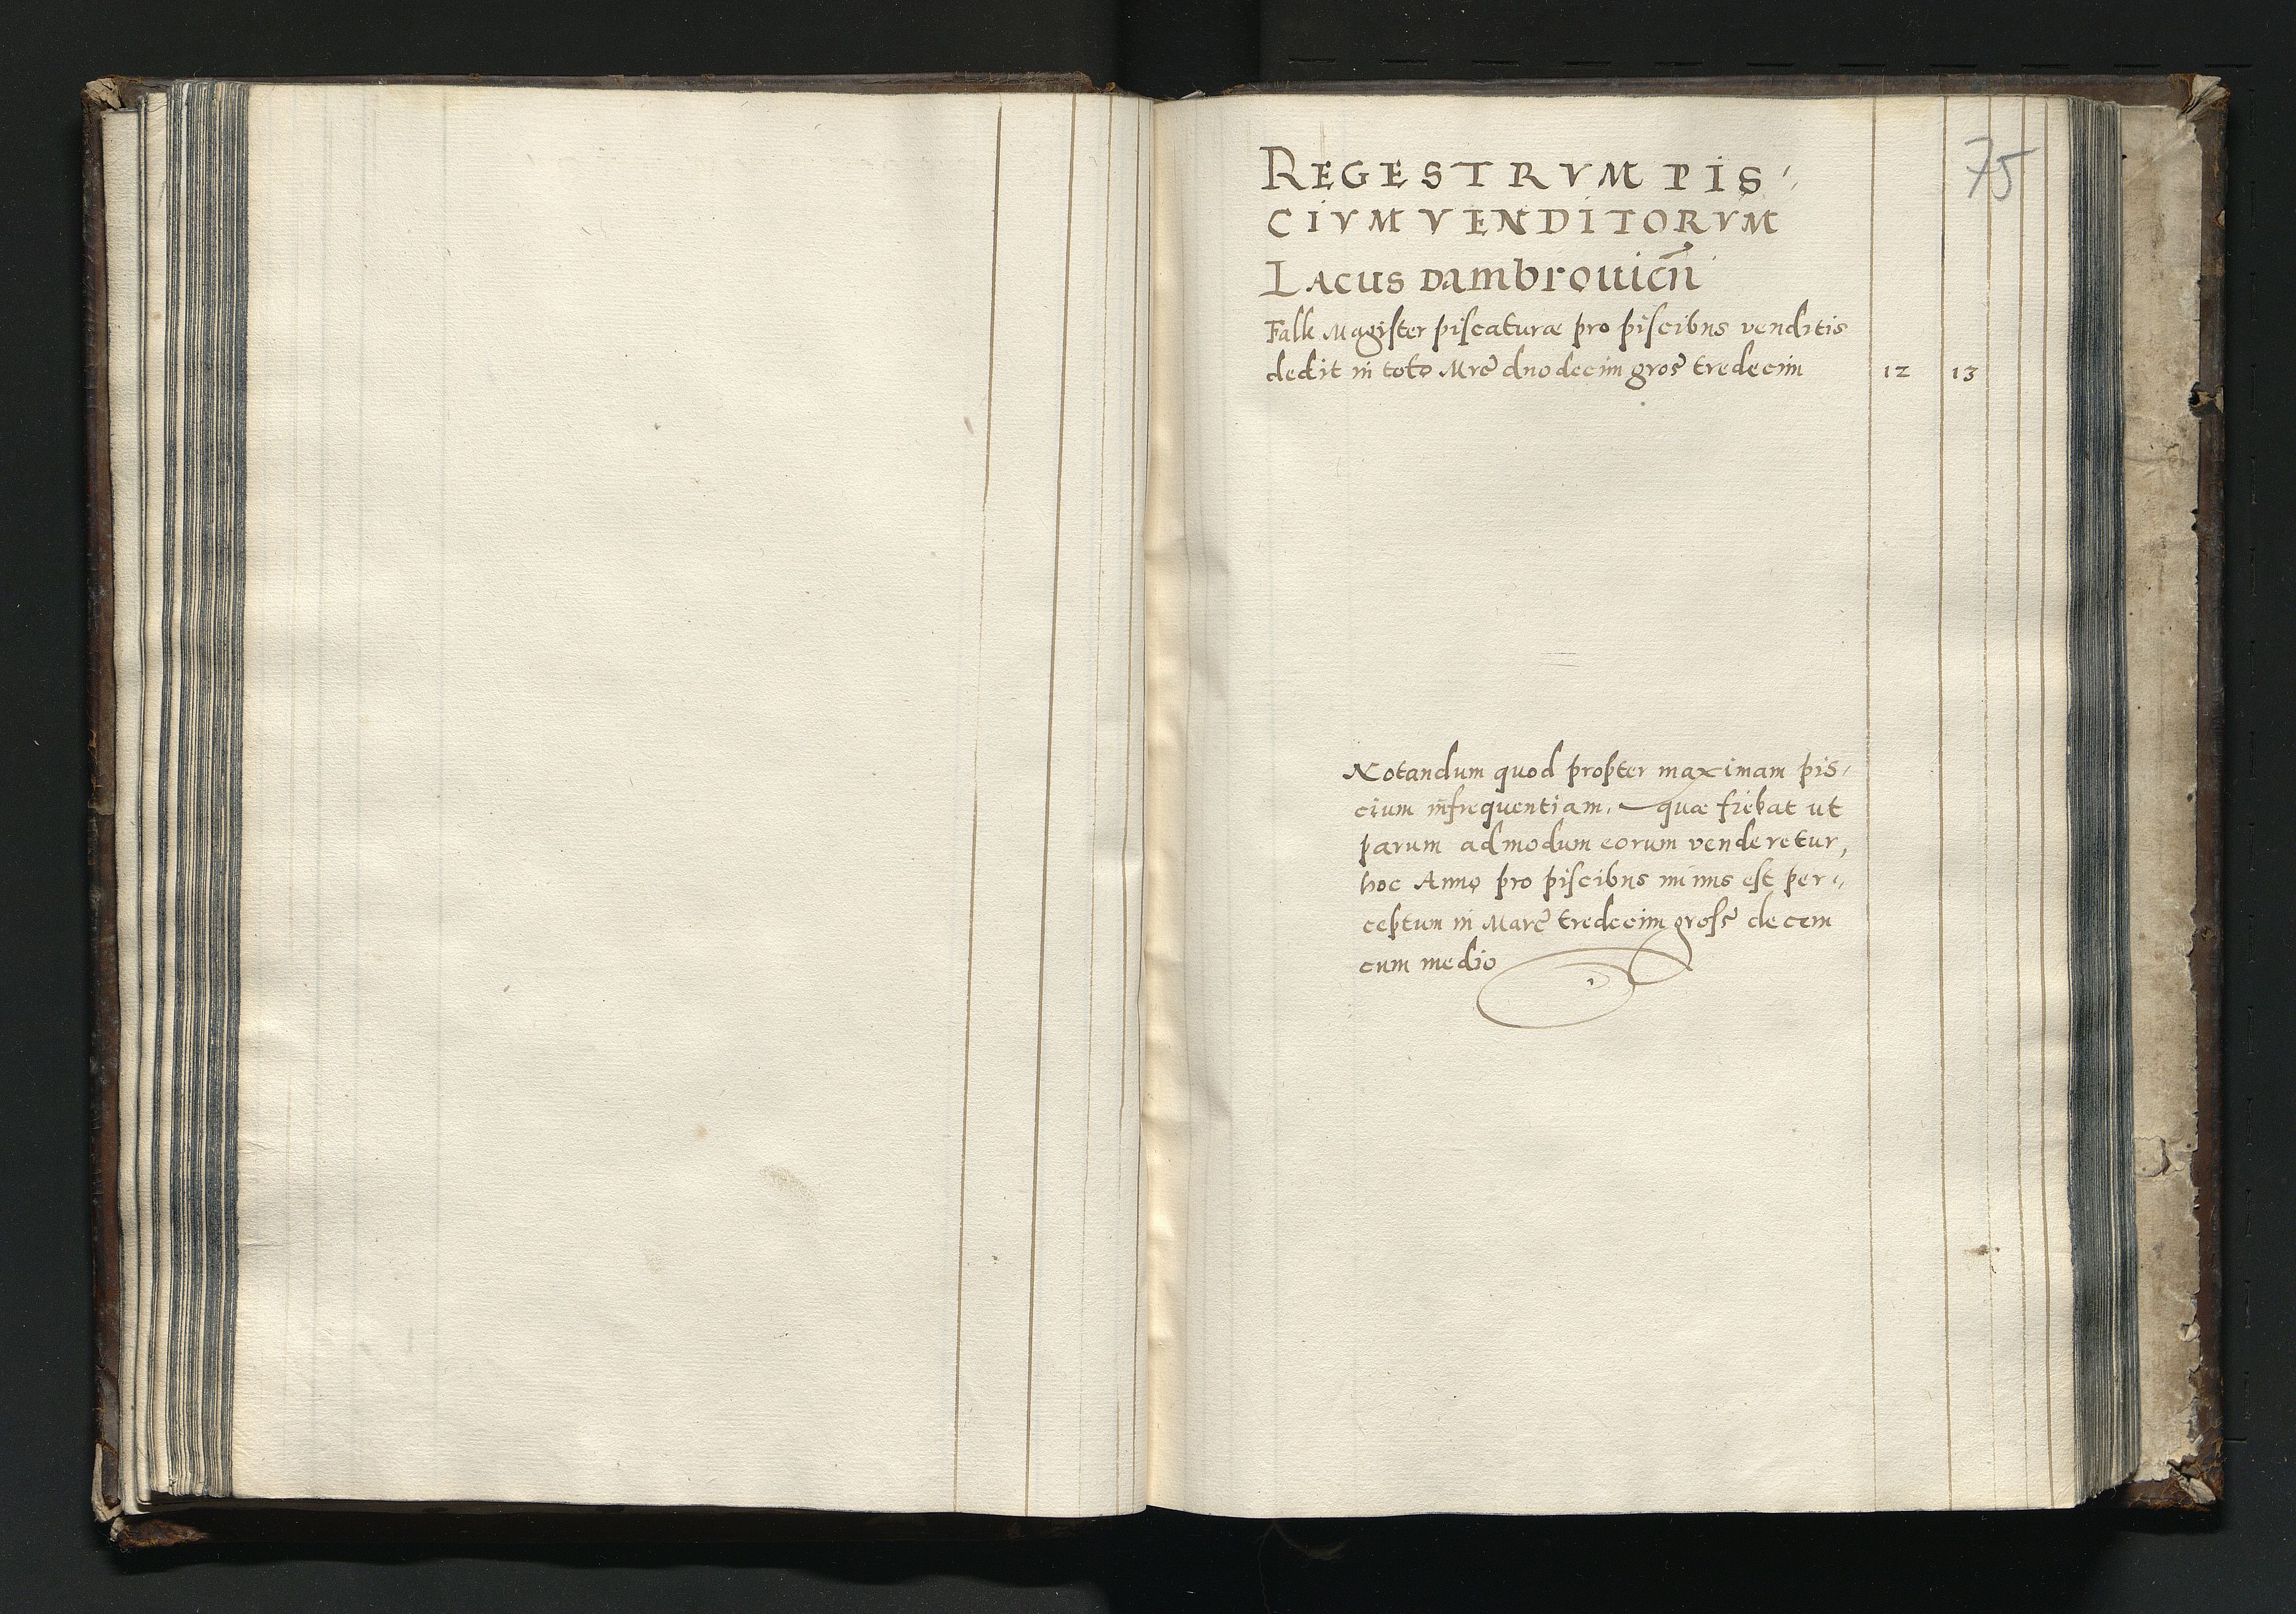 75
REGESTRVM PIS-
CIVM VENDITORVM
LACUS Dambrouicñ
Falk Magister piscaturæ pro piscibus venditis
dedit in toto Mrc̃ duodecim gros̃ tredecim 12 13
Notandum quod propter maximam pis-
cium infrequentiam, quæ fiebat ut
parum admodum eorum venderetur,
hoc Anno pro piscibus minus est per-
ceptum in Marc̃ tredecim gross̃ decem
cum medio